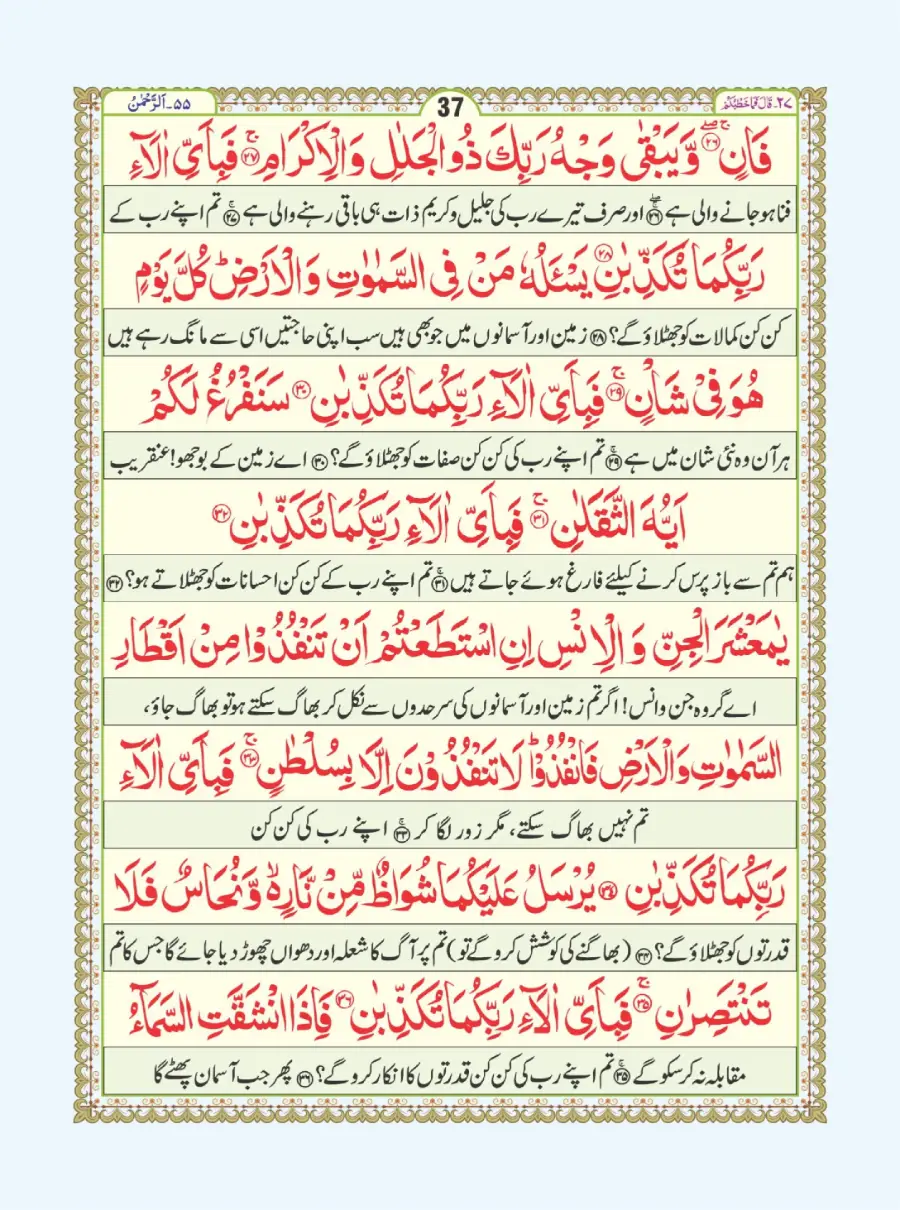 ۲۷۔ قَالَ فَمَا خَطْبُكُمْ 37 ۵۵۔ اَلرَّحْمٰنُ
فَانٍ ۚۖ۲۶ وَّيَبْقٰى وَجْهُ رَبِّكَ ذُو الْجَلٰلِ وَالْاِكْرَامِ ۚ۲۷ فَبِاَيِّ اٰلَآءِ
فنا ہو جانے والی ہے ۲۶ اور صرف تیرے رب کی جلیل و کریم ذات ہی باقی رہنے والی ہے ۲۷ تم اپنے رب کے
رَبِّكُمَا تُكَذِّبٰنِ ۲۸ يَسْـَٔلُهٗ مَنْ فِى السَّمٰوٰتِ وَالْاَرْضِ ؕ كُلَّ يَوْمٍ
کن کن کمالات کو جھٹلاؤ گے؟ ۲۸ زمین اور آسمانوں میں جو بھی ہیں سب اپنی حاجتیں اسی سے مانگ رہے ہیں
هُوَ فِىْ شَاْنٍ ۚ۲۹ فَبِاَيِّ اٰلَآءِ رَبِّكُمَا تُكَذِّبٰنِ ۳۰ سَنَفْرُغُ لَكُمْ
ہر آن وہ نئی شان میں ہے ۲۹ تم اپنے رب کی کن کن صفات کو جھٹلاؤ گے؟ ۳۰ اے زمین کے بوجھو! عنقریب
اَيُّهَ الثَّقَلٰنِ ۚ۳۱ فَبِاَيِّ اٰلَآءِ رَبِّكُمَا تُكَذِّبٰنِ ۳۲
ہم تم سے باز پرس کرنے کیلئے فارغ ہوئے جاتے ہیں ۳۱ تم اپنے رب کے کن کن احسانات کو جھٹلاتے ہو؟ ۳۲
يٰمَعْشَرَ الْجِنِّ وَالْاِنْسِ اِنِ اسْتَطَعْتُمْ اَنْ تَنْفُذُوْا مِنْ اَقْطَارِ
اے گروہ جن و انس! اگر تم زمین اور آسمانوں کی سرحدوں سے نکل کر بھاگ سکتے ہو تو بھاگ جاؤ،
السَّمٰوٰتِ وَالْاَرْضِ فَانْفُذُوْا ؕ لَا تَنْفُذُوْنَ اِلَّا بِسُلْطٰنٍ ۚ۳۳ فَبِاَيِّ اٰلَآءِ
تم نہیں بھاگ سکتے، مگر زور لگا کر ۳۳ اپنے رب کی کن کن
رَبِّكُمَا تُكَذِّبٰنِ ۳۴ يُرْسَلُ عَلَيْكُمَا شُوَاظٌ مِّنْ نَّارٍ ۙ وَّنُحَاسٌ فَلَا
قدرتوں کو جھٹلاؤ گے؟ ۳۴ (بھاگنے کی کوشش کرو گے تو) تم پر آگ کا شعلہ اور دھواں چھوڑ دیا جائے گا جس کا تم
تَنْتَصِرٰنِ ۚ۳۵ فَبِاَيِّ اٰلَآءِ رَبِّكُمَا تُكَذِّبٰنِ ۳۶ فَاِذَا انْشَقَّتِ السَّمَآءُ
مقابلہ نہ کر سکو گے ۳۵ تم اپنے رب کی کن کن قدرتوں کا انکار کرو گے؟ ۳۶ پھر جب آسمان پھٹے گا